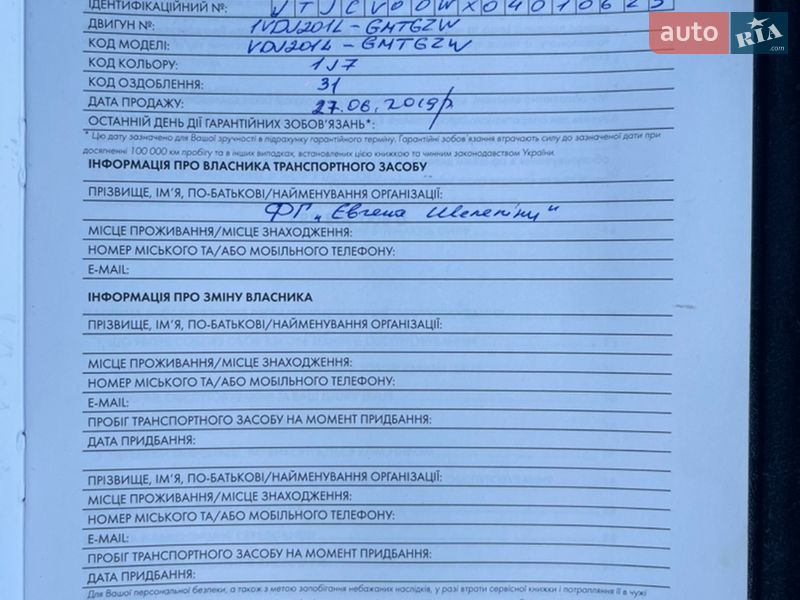 auto RIA .com
ІДЕНТИФІКАЦІЙНИЙ №: J T J C V 0 0 W X 0 4 0 1 0 6 2 3
ДВИГУН №: 1VDJ201L-GMTGZW
КОД МОДЕЛІ: VDJ201L-GMTGZW
КОД КОЛЬОРУ: 1J7
КОД ОЗДОБЛЕННЯ: 31
ДАТА ПРОДАЖУ: 27.06.2019р.
ОСТАННІЙ ДЕНЬ ДІЇ ГАРАНТІЙНИХ ЗОБОВ'ЯЗАНЬ*:
* Цю дату зазначено для Вашої зручності в підрахунку гарантійного терміну. Гарантійні зобов'язання втрачають силу до зазначеної дати при
досягненні 100 000 км пробігу та в інших випадках, встановлених цією книжкою та чинним законодавством України.
ІНФОРМАЦІЯ ПРО ВЛАСНИКА ТРАНСПОРТНОГО ЗАСОБУ
ПРІЗВИЩЕ, ІМ'Я, ПО-БАТЬКОВІ/НАЙМЕНУВАННЯ ОРГАНІЗАЦІЇ:
ФГ „Євгена
МІСЦЕ ПРОЖИВАННЯ/МІСЦЕ ЗНАХОДЖЕННЯ:
НОМЕР МІСЬКОГО ТА/АБО МОБІЛЬНОГО ТЕЛЕФОНУ:
E-MAIL:
ІНФОРМАЦІЯ ПРО ЗМІНУ ВЛАСНИКА
ПРІЗВИЩЕ, ІМ'Я, ПО-БАТЬКОВІ/НАЙМЕНУВАННЯ ОРГАНІЗАЦІЇ:
МІСЦЕ ПРОЖИВАННЯ/МІСЦЕ ЗНАХОДЖЕННЯ:
НОМЕР МІСЬКОГО ТА/АБО МОБІЛЬНОГО ТЕЛЕФОНУ:
E-MAIL:
ПРОБІГ ТРАНСПОРТНОГО ЗАСОБУ НА МОМЕНТ ПРИДБАННЯ:
ДАТА ПРИДБАННЯ:
ПРІЗВИЩЕ, ІМ'Я, ПО-БАТЬКОВІ/НАЙМЕНУВАННЯ ОРГАНІЗАЦІЇ:
МІСЦЕ ПРОЖИВАННЯ/МІСЦЕ ЗНАХОДЖЕННЯ:
НОМЕР МІСЬКОГО ТА/АБО МОБІЛЬНОГО ТЕЛЕФОНУ:
E-MAIL:
ПРОБІГ ТРАНСПОРТНОГО ЗАСОБУ НА МОМЕНТ ПРИДБАННЯ:
ДАТА ПРИДБАННЯ:
Для Вашої персональної безпеки, а також з метою запобігання небажаних наслідків, у разі втрати сервісної книжки і потрапляння її в чужі